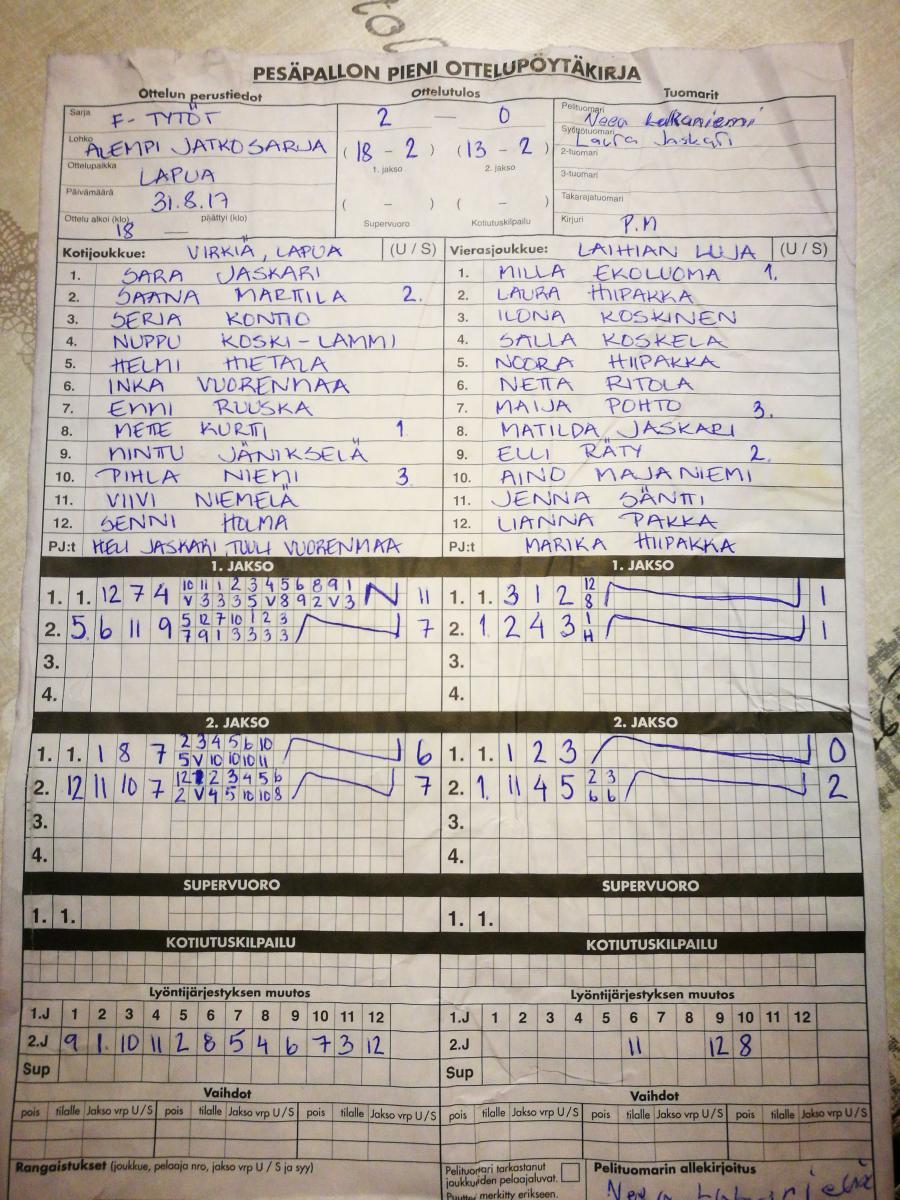 PESÄPALLON PIENI OTTELUPÖYTÄKIRJA
Ottelun perustiedot Ottelutulos Tuomarit
Sarja F- TYTÖT 2 — 0 Pelituomari Neea
Lohko ALEMPI JATKOSARJA (18 - 2) (13 - 2) Syöttötuomari Laura Jaskari
1. jakso 2. jakso 2-tuomari
Ottelupaikka LAPUA 3-tuomari
Päivämäärä 31.8.17 ( - ) ( - ) Takarajatuomari
Ottelu alkoi (klo) 18 päättyi (klo) — Supervuoro Kotiutuskilpailu Kirjuri P.N
Kotijoukkue: VIRKIÄ, LAPUA (U / S) Vierasjoukkue: LAIHIAN LUJA (U / S)
1. SARA JASKARI 1. MILLA EKOLUOMA 1.
2. SAANA MARTTILA 2. 2. LAURA HIIPAKKA
3. SERJA KONTIO 3. ILONA KOSKINEN
4. NUPPU KOSKI-LAMMI 4. SALLA KOSKELA
5. HELMI HIETALA 5. NOORA HIIPAKKA
6. INKA VUORENMAA 6. NETTA RITOLA
7. EMMI RUUSKA 7. MAIJA POHTO 3.
8. METTE KURTTI 1 8. MATILDA JASKARI
9. MINTU JÄNIKSELÄ 9. ELLI RÄTY 2.
10. PIHLA NIEMI 3 10. AINO MAJANIEMI
11. VIIVI NIEMELÄ 11. JENNA SÄNTTI
12. SENNI HOLMA 12. LIANNA PAKKA
PJ:t HELI JASKARI, TUULI VUORENMAA PJ:t MARIKA HIIPAKKA
1. JAKSO 1. JAKSO
10 11 1 2 3 4 5 6 8 9 1 12
1. 1. 12 7 4 V 3 3 3 5 V 8 9 2 V 3 N 11 1. 1. 3 1 2 8 1
5 12 7 10 1 2 3 1
2. 5. 6 11 9 7 9 1 3 3 3 3 7 2. 1 2 4 3 H 1
3. 3.
4. 4.
2. JAKSO 2. JAKSO
2 3 4 5 6 10
1. 1. 1 8 7 5 V 10 10 10 11 6 1. 1. 1 2 3 0
12 1 2 3 4 5 6 2 3
2. 12 11 10 7 2 V 4 5 10 10 8 7 2. 1. 11 4 5 6 6 2
3. 3.
4. 4.
SUPERVUORO SUPERVUORO
1. 1. 1. 1.
KOTIUTUSKILPAILU KOTIUTUSKILPAILU
Lyöntijärjestyksen muutos Lyöntijärjestyksen muutos
1.J 1 2 3 4 5 6 7 8 9 10 11 12 1.J 1 2 3 4 5 6 7 8 9 10 11 12
2.J 9 1. 10 11 2 8 5 4 6 7 3 12 2.J 11 12 8
Sup Sup
Vaihdot Vaihdot
pois tilalle Jakso vrp U / S pois tilalle Jakso vrp U / S pois tilalle Jakso vrp U / S pois tilalle Jakso vrp U / S pois tilalle Jakso vrp U / S pois tilalle Jakso vrp U / S
Rangaistukset (joukkue, pelaaja nro, jakso vrp U / S ja syy) Pelituomari tarkastanut Pelituomarin allekirjoitus
joukkueiden pelaajaluvat.
merkitty erikseen.